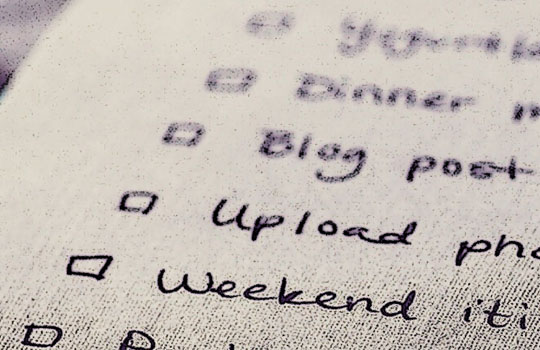 Dinner
Blog post
Upload pho
Weekend iti